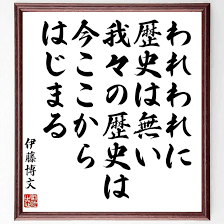 われわれに
歴史は無い
我々の歴史は
今ここから
はじまる
伊藤博文